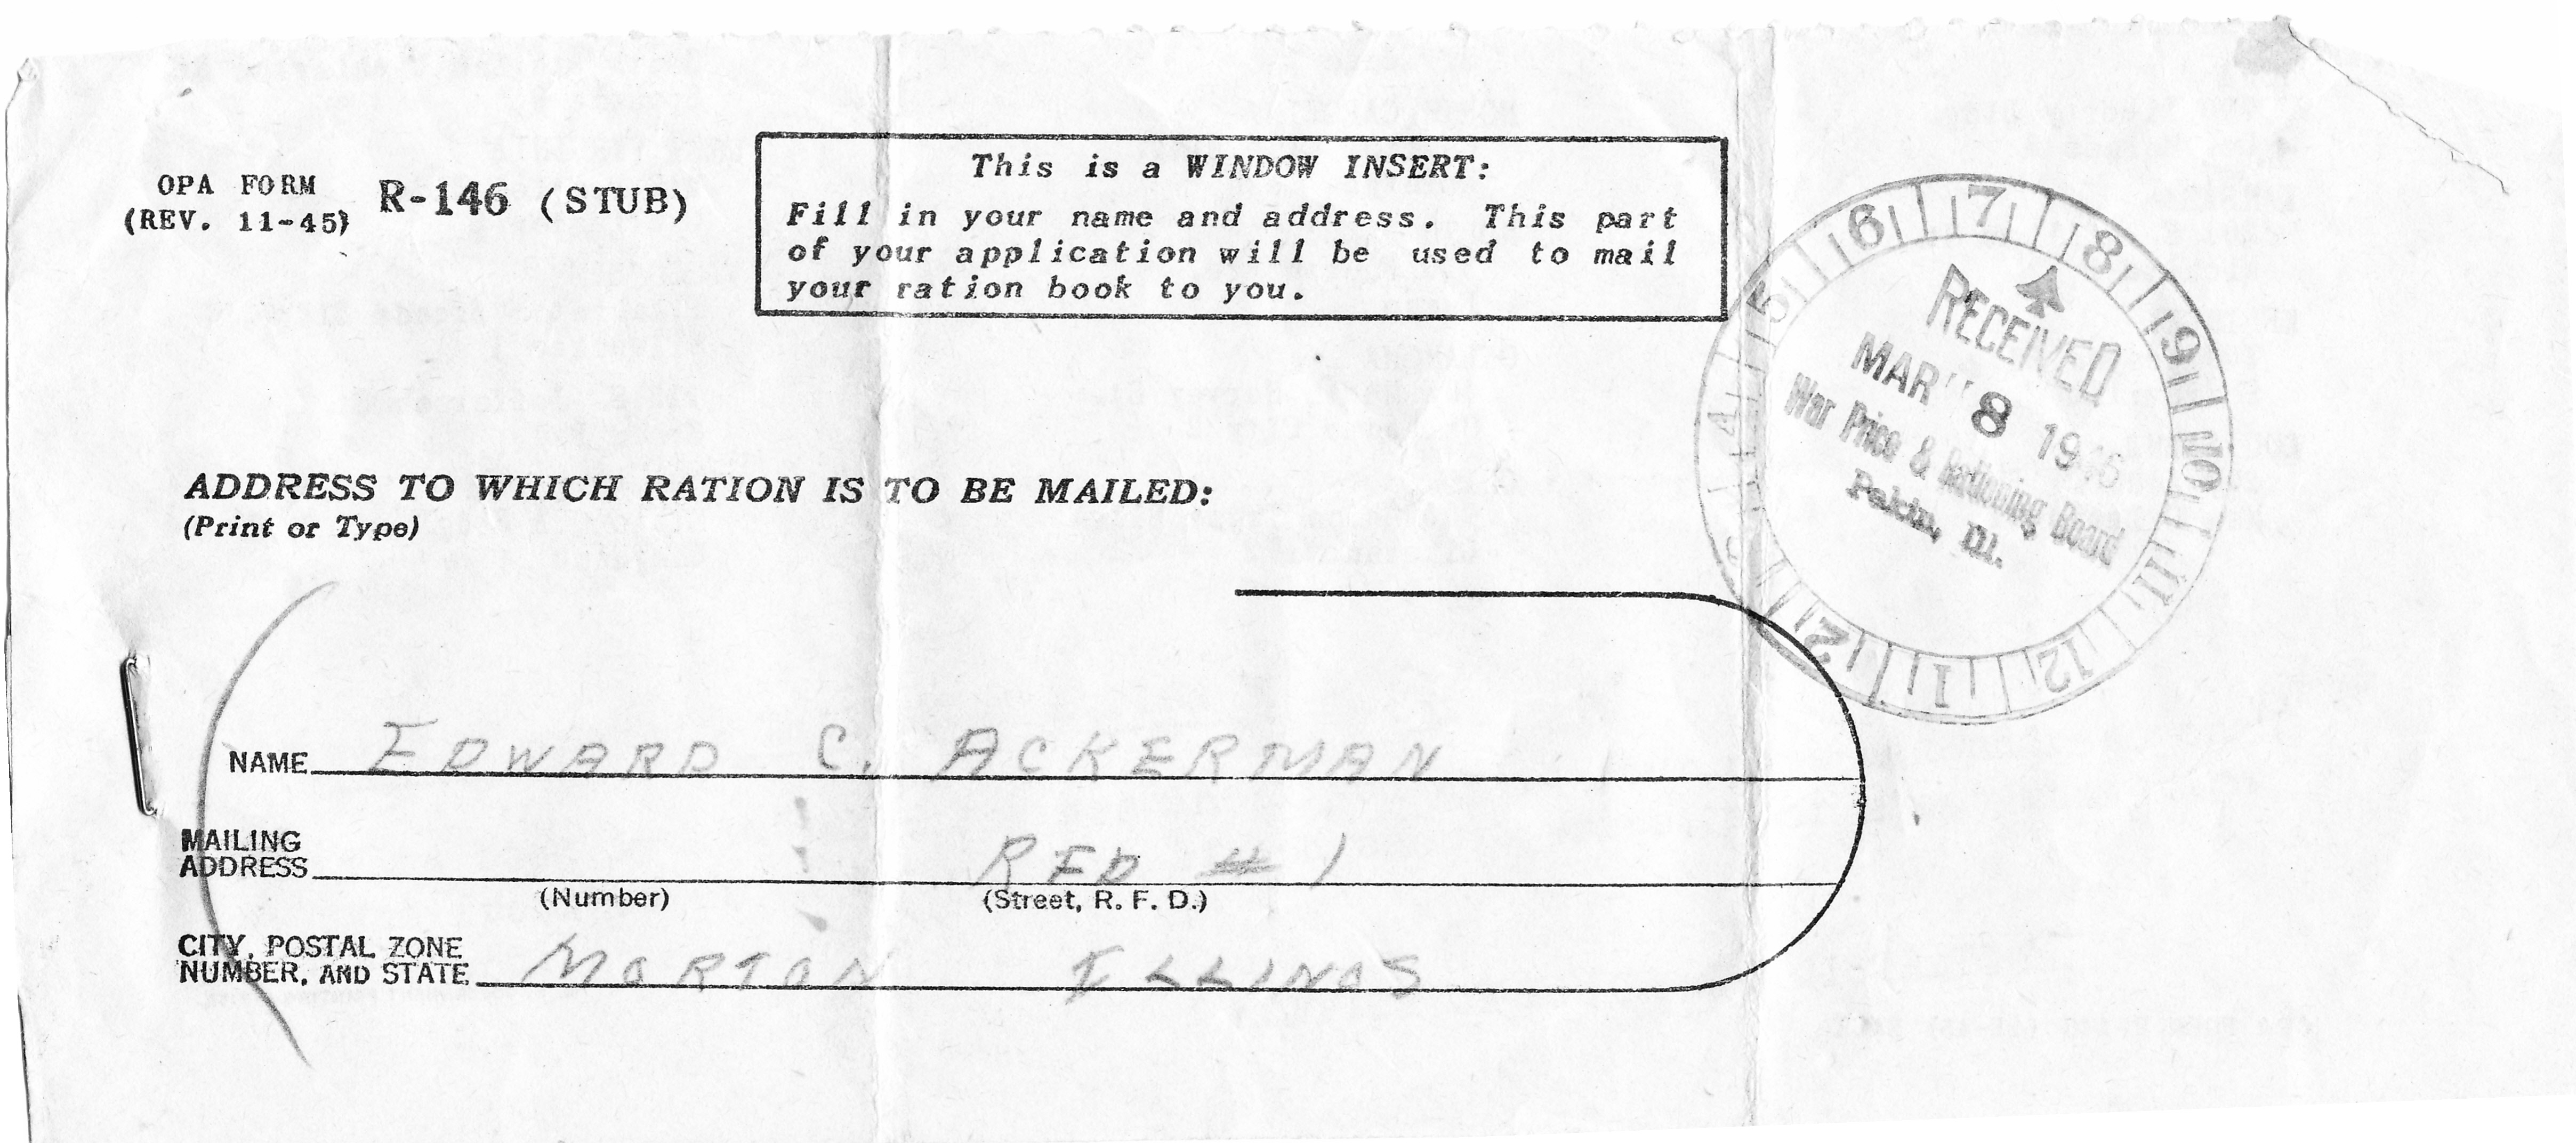 OPA FORM
(REV. 11-45)
R-146 (STUB)
This is a WINDOW INSERT:
Fill in your name and address. This part
of your application will be used to mail
your ration book to you.
5 6 7 8 9 10 11 12 1 2
RECEIVED
MAR 8 1946
War Price & Rationing Board
Pekin, Ill.
ADDRESS TO WHICH RATION IS TO BE MAILED:
(Print or Type)
NAME EDWARD C. ACKERMAN
MAILING
ADDRESS RFD # 1
(Number) (Street, R. F. D.)
CITY, POSTAL ZONE
NUMBER, AND STATE MORTON ILLINOS